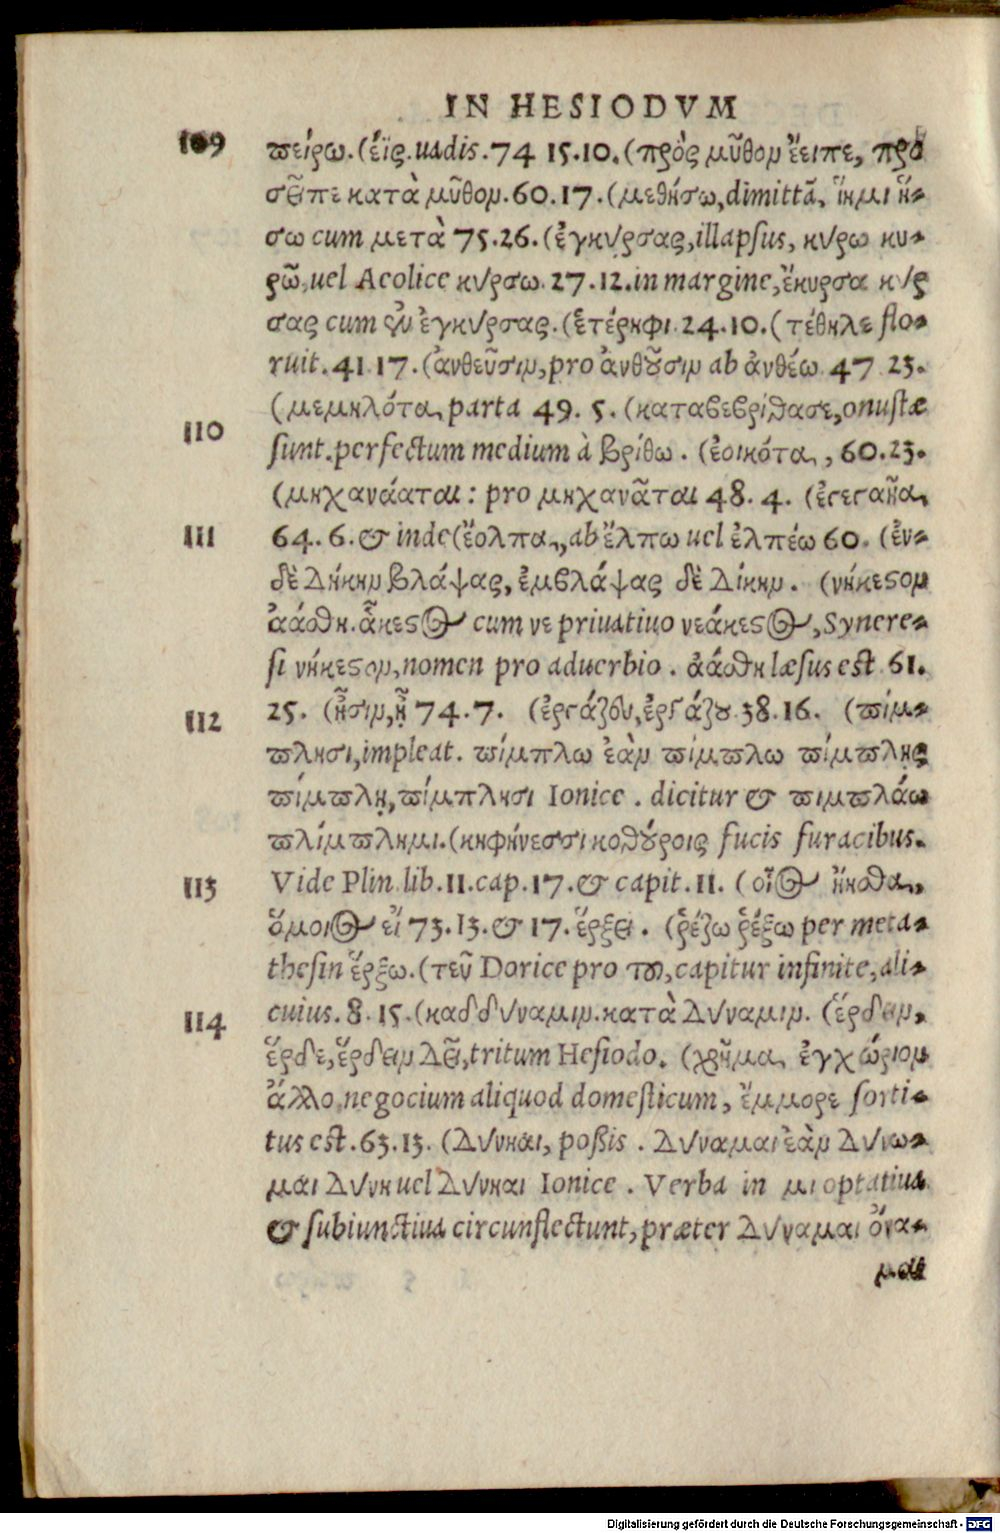 IN HESIODVM
109 πείρω. (ἔϊς. uadis. 74 15. 10. (πρὸς μῦθον ἔειπε, προ
σεῖπε κατὰ μῦθον. 60. 17. (μεθήσω, dimittã, ἵημι ἥ-
σω cum μετὰ 75. 26. (ἐγκύρσας, illapsus, κύρω κυ-
ρῶ, uel Aeolice κύρσω. 27. 12. in margine, ἔκυρσα κύρ
σας cum ἐν ἐγκύρσας. (ἑτέρηφι 24. 10. (τέθηλε flo-
ruit. 41 17. (ἀνθεῦσιν, pro ἀνθοῦσιν ab ἀνθέω 47 23.
(μεμηλότα, parta 49. 5. (καταβεβρίθασε, onustæ
110 sunt. perfectum medium à βρίθω. (ἐοικότα, 60. 23.
(μηχανάαται: pro μηχανᾶται 48. 4. (ἐτεταῆα,
111 64. 6. & inde (ἔολπα, ab ἔλπω uel ἐλπέω 60. (ἐν-
δὲ Δήκην βλάψας, ἐμβλάψας δὲ Δίκην. (νήκεστον
ἀάσθη. ἄκεστος cum νε priuatiuo νεάκεστος, Synere-
si νήκεστον, nomen pro aduerbio. ἀάσθη læsus est 61.
112 25. (ᾖσιν, ᾖ 74. 7. (ἐργάζευ, ἐργάζου 38. 16. (πίμ-
πλησι, impleat. πίμπλω ἐὰν πίμπλω πίμπλῃς
πίμπλῃ, πίμπλησι Ionice. dicitur & πιμπλάω
πλίμπλημι. (κηφήνεσσι κοθούροις fucis furacibus.
113 Vide Plin. lib. 11. cap. 17. & capit. 11. (οἷος ἤκοθα,
ὅμοιος εἶ 73. 13. & 17. ἔρξει. (ῥέζω ῥέξω per meta-
thesin ἔρξω. (τεῦ Dorice pro του, capitur infinite, ali-
114 cuius. 8. 15. (καδδύναμιν. κατὰ Δύναμιν. (ἔρδειν,
ἔρδε, ἔρδειν Δεῖ, tritum Hesiodo. (χρῆμα ἐγχώριον
ἄλλο, negocium aliquod domesticum, ἔμμορε sorti-
tus est. 63. 13. (Δύνηαι, poßis. Δύναμαι ἐὰν Δύνω-
μαι Δύνη uel Δύνηαι Ionice. Verba in μι optatiua
& subiunctiua circunflectunt, præter Δύναμαι ὄνα-
μαι
Digitalisierung gefördert durch die Deutsche Forschungsgemeinschaft - DFG